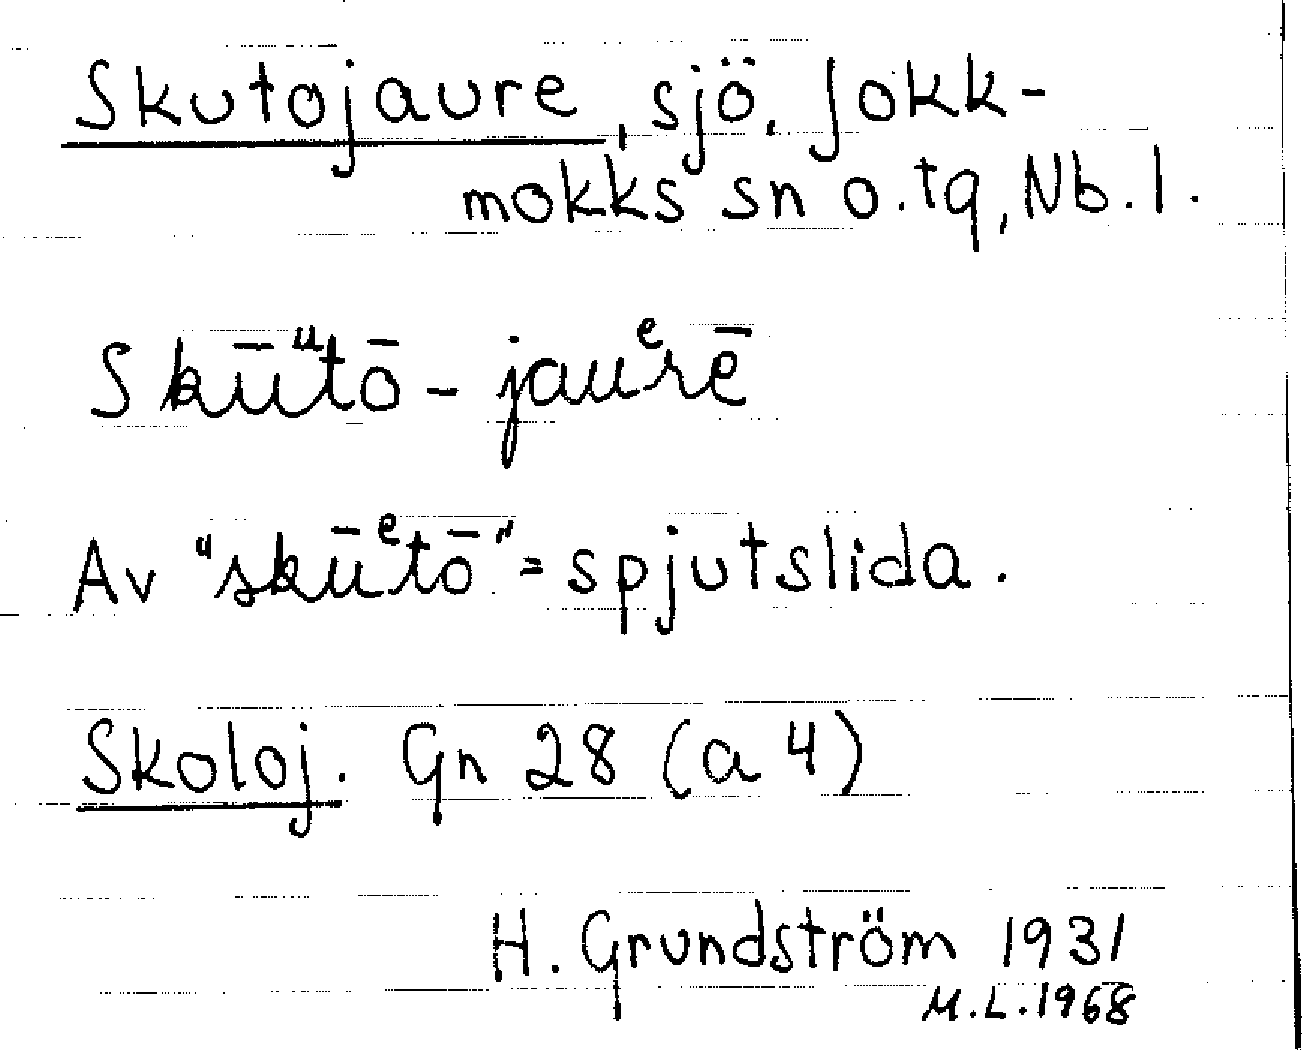 Skutojaure, sjö. Jokk-
mokks sn o. tg, Nb. l.
Skūᵘtō - jauᵉrē
Av "skūᵉtō" = spjutslida.
Skoloj. Gn 28 (a 4)
H. Grundström 1931
M.L. 1968